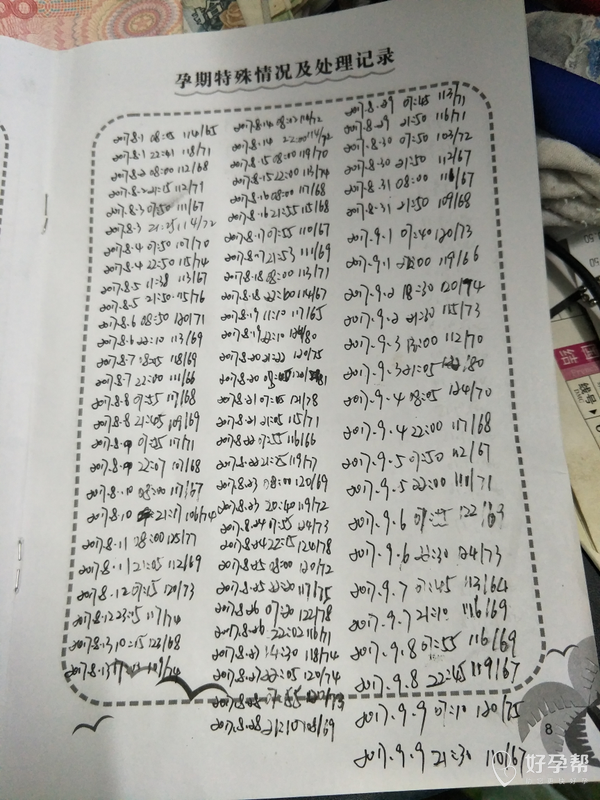 孕期特殊情况及处理记录
2017.8.1 08:45 114/65
2017.8.1 22:41 118/71
2017.8.2 08:00 112/68
2017.8.2 21:15 112/79
2017.8.3 07:50 111/67
2017.8.3 21:25 114/72
2017.8.4 07:50 107/70
2017.8.4 22:50 115/74
2017.8.5 11:38 113/67
2017.8.5 21:50 115/76
2017.8.6 08:50 120/71
2017.8.6 22:10 113/69
2017.8.7 18:05 118/69
2017.8.7 22:00 111/66
2017.8.8 07:55 117/68
2017.8.8 21:05 109/69
2017.8.9 07:55 117/71
2017.8.9 22:07 107/68
2017.8.10 08:00 117/67
2017.8.10 21:17 106/74
2017.8.11 08:00 125/77
2017.8.11 21:05 112/69
2017.8.12 07:15 120/73
2017.8.12 23:15 117/74
2017.8.13 10:15 123/68
2017.8.13 109/74
2017.8.14 08:23 114/72
2017.8.14 22:20 114/72
2017.8.15 08:00 119/70
2017.8.15 22:00 113/74
2017.8.16 08:00 117/68
2017.8.16 21:55 115/68
2017.8.17 07:55 110/67
2017.8.17 21:53 111/69
2017.8.18 08:00 113/71
2017.8.18 22:00 114/67
2017.8.19 11:10 117/65
2017.8.19 22:10 124/80
2017.8.20 21:22 120/75
2017.8.20
2017.8.21 07:05 121/78
2017.8.21 21:05 115/71
2017.8.22 07:55 116/66
2017.8.22 21:25 119/77
2017.8.23 08:00 120/69
2017.8.23 20:40 119/72
2017.8.24 07:55 124/73
2017.8.24 22:05 124/78
2017.8.25 08:00 120/72
2017.8.25 22:20 117/75
2017.8.26 07:20 122/78
2017.8.26 22:02 116/71
2017.8.27 14:30 118/74
2017.8.27 22:05 120/74
2017.8.28 07:55 122/73
2017.8.28 21:10 108/69
2017.8.29 07:45 113/71
2017.8.29 21:50 116/71
2017.8.30 07:50 103/72
2017.8.30 21:50 112/67
2017.8.31 08:00 116/67
2017.8.31 21:50 109/68
2017.9.1 07:40 120/73
2017.9.1 22:00 119/66
2017.9.2 18:30 120/74
2017.9.2 21:32 115/73
2017.9.3 13:00 112/70
2017.9.3 21:05
2017.9.4 08:05 124/70
2017.9.4 22:00 117/68
2017.9.5 07:50 112/67
2017.9.5 22:00 118/71
2017.9.6 122/69
2017.9.6 22:30 124/73
2017.9.7 07:45 113/64
2017.9.7 21:10 116/69
2017.9.8 07:55 116/69
2017.9.8 22:45 119/67
2017.9.9 07:10 120/75
2017.9.9 21:30 110/67
8
好孕帮
结
线号